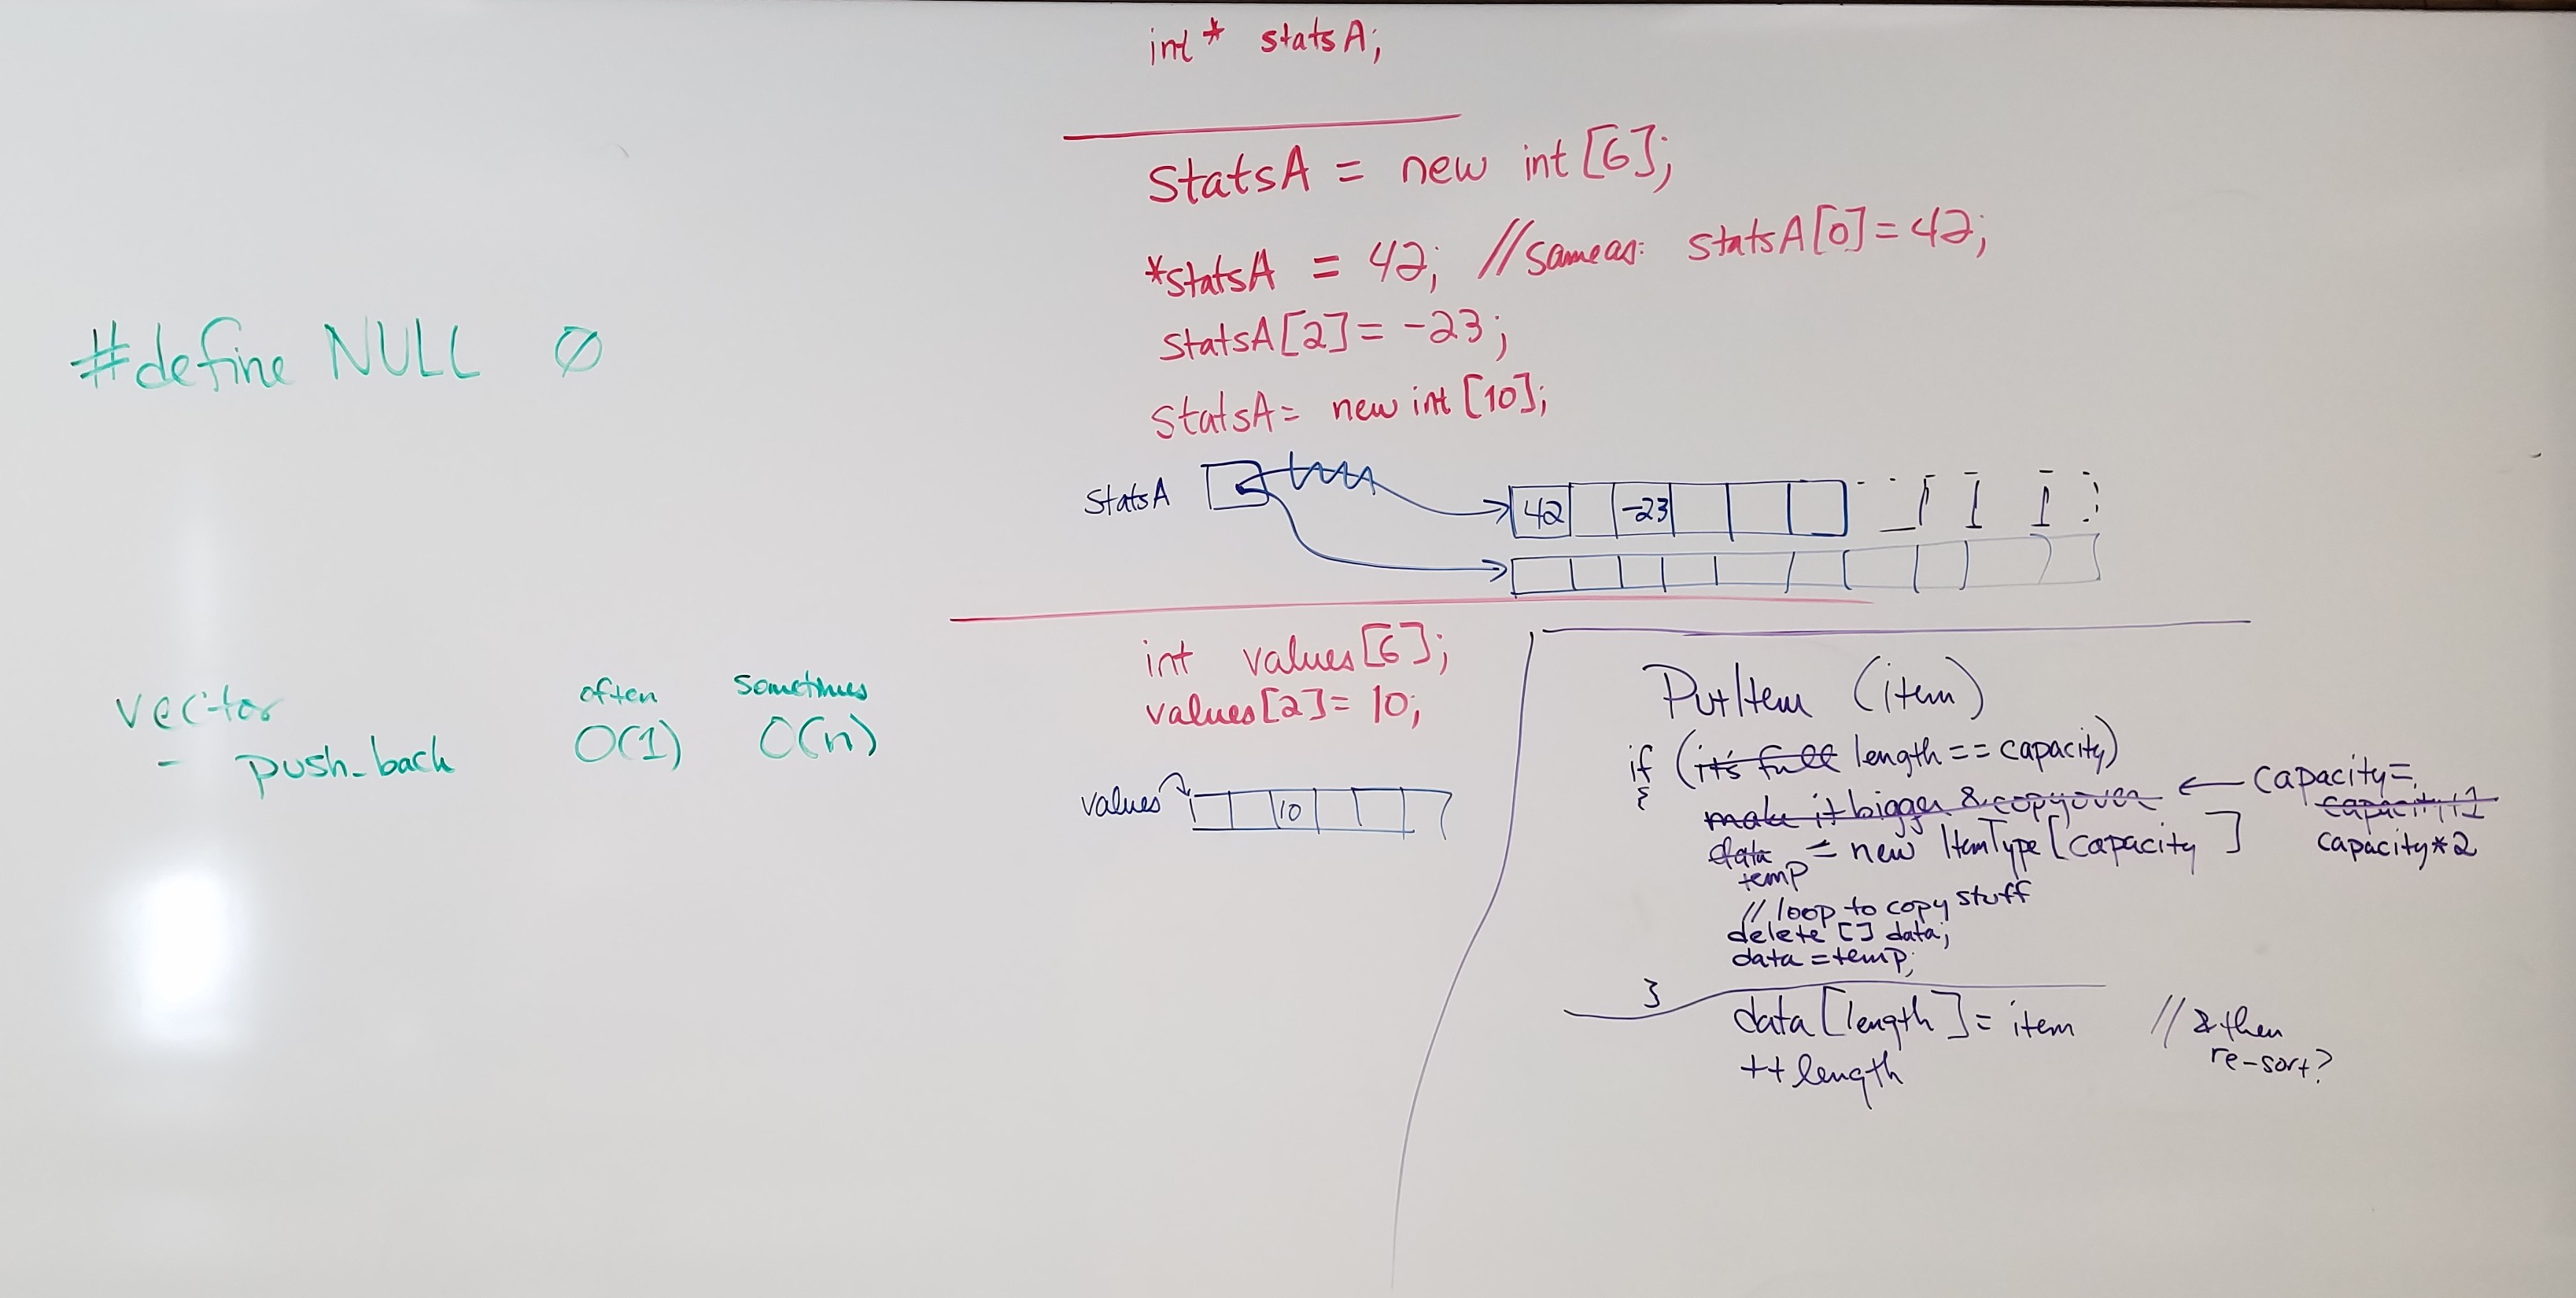 int* statsA;
StatsA = new int[6];
*statsA = 42; //same as: statsA[0]=42;
statsA[2]= -23;
StatsA= new int[10];
#define NULL Ø
StatsA
42 -23
vector
often sometimes
- push_back O(1) O(n)
int values[6];
values[2]= 10;
values
10
PutItem (item)
if (it's full length == capacity)
{
make it bigger & copy over ← capacity=
capacity+1
capacity*2
data = new ItemType[capacity ]
temp
// loop to copy stuff
delete [] data;
data = temp;
}
data[length]= item // & then
re-sort?
++length